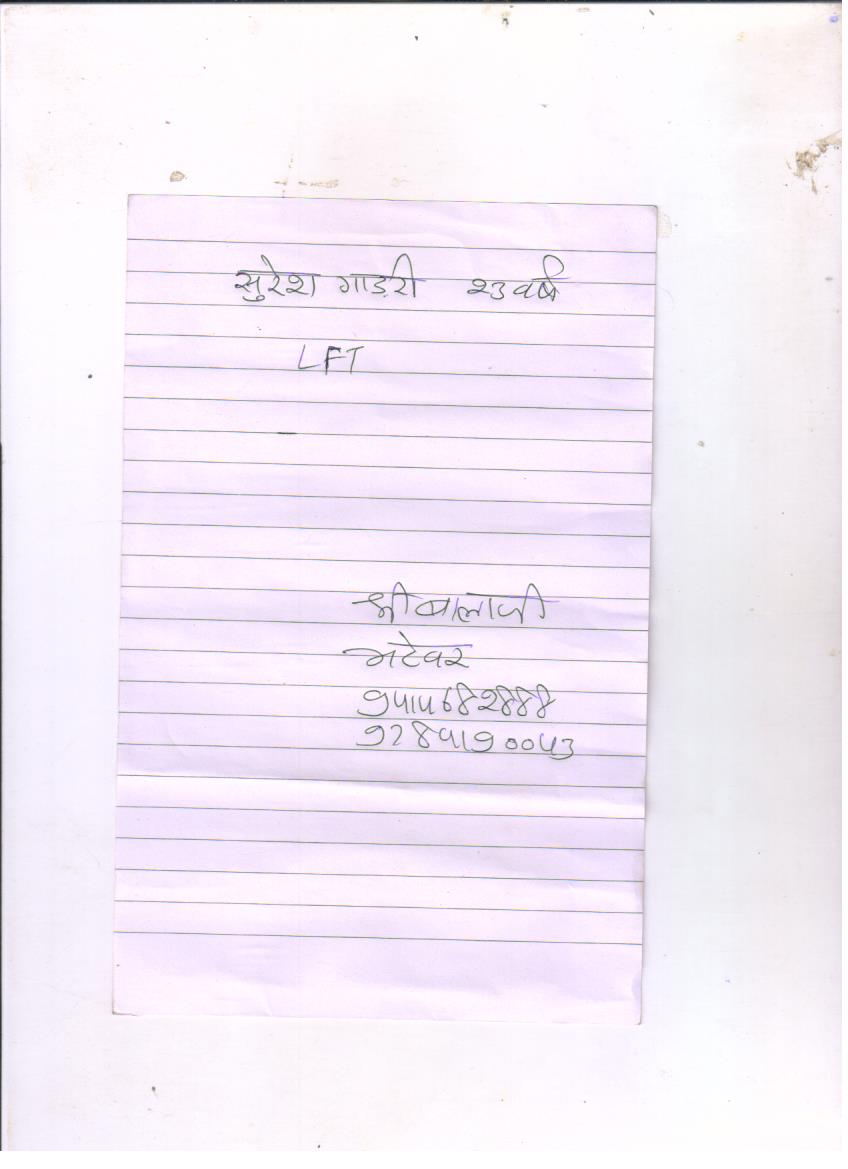 सुरेश गाडरी 23 वर्ष
LFT
श्री बालाजी
भटेवर
9414682888